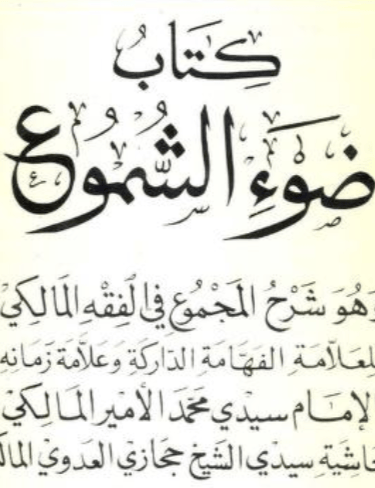 كِتَابُ
ضَوْءِ الشُّمُوعِ
وَهُوَ شَرْحُ المَجْمُوعِ فِي الفِقْهِ المَالِكِيْ
لِلعَلَّامَةِ الفَهَّامَةِ الدَّارِكَةِ وَعَلَّامَةِ زَمَانِهِ
الإِمَامِ سِيدِي مُحَمَّد الأَمِيرِ المَالِكِيْ
حَاشِيَةِ سِيدِي الشَّيْخِ حِجَازِي العَدَوِيْ